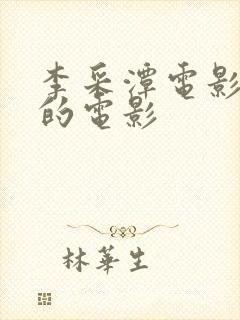 李采潭電影
的電影
林華生